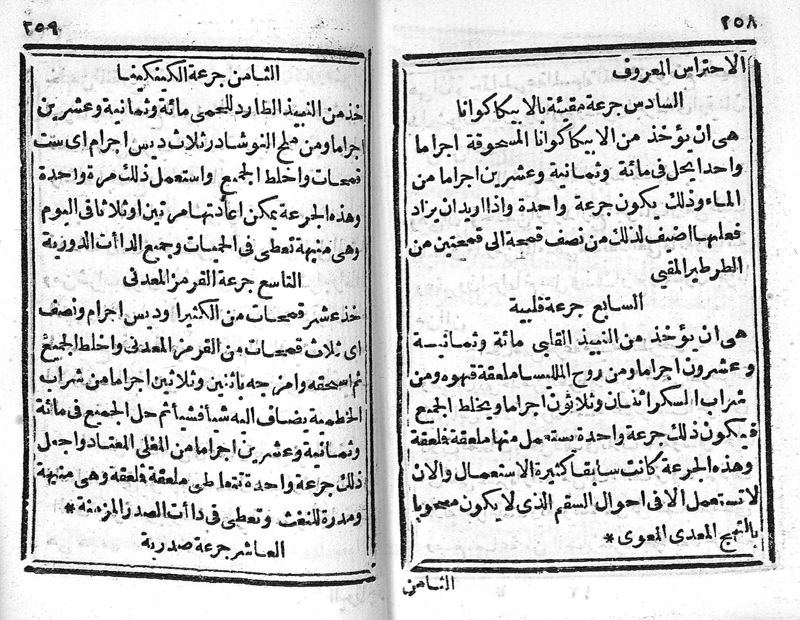 ٢٥٨
الاحتراس المعروف
السادس جرعة مقيئة بالايبيكاكوانا
هى ان يؤخذ من الايبيكاكوانا المسحوقة اجراما
واحدا يحل فى مائة وثمانية وعشرين اجراما من
الماء وذلك يكون جرعة واحدة واذا اريد ان يزاد
فعلها اضيف لذلك من نصف قمحة الى قمحتين من
الطرطير المقيى
السابع جرعة قلبية
هى ان يؤخذ من النبيذ القلبى مائة وثمانية
وعشرون اجراما ومن روح المليسا ملعقة قهوه ومن
شراب السكر اثنان وثلاثون اجراما ويخلط الجميع
فيكون ذلك جرعة واحدة يستعمل منها ملعقة فلعقة
وهذه الجرعة كانت سابقا كثيرة الاستعمال والان
لا تستعمل الا فى احوال السقم الذى لا يكون مصحوبا
بالتهيج المعدى المعوى *
الثامن
٢٥٩
الثامن جرعة الكينكينا
خذ من النبيذ الطارد للحمى مائة وثمانية وعشرين
اجراما ومن ملح النوشادر ثلاث ديس اجرام اى ست
قمحات واخلط الجميع واستعمل ذلك مرة واحدة
وهذه الجرعة يمكن اعادتها مرتين او ثلاثا فى اليوم
وهى منبهة تعطى فى الحميات وجميع الداآت الدورية
التاسع جرعة القرمز المعدنى
خذ عشر قمحات من الكثيرا وديس اجرام ونصف
اى ثلاث قمحات من القرمز المعدنى واخلط الجميع
ثم اسحقه وامزجه باثنين وثلاثين اجراما من شراب
الخطمية يضاف اليه شيأ فشيأ ثم حل الجميع فى مائة
وثمانية وعشرين اجراما من المغلى المعتاد واجعل
ذلك جرعة واحدة تتعاطى ملعقة فلعقة وهى منبهة
ومدرة للنفث وتعطى فى داآت الصدر المزمنة *
العاشر جرعة صدرية